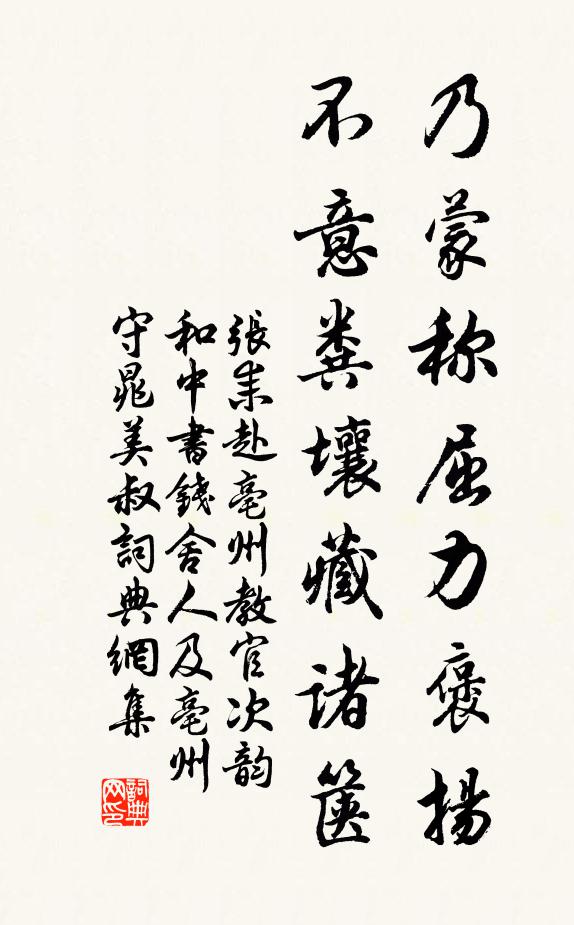 乃蒙称屈力褒揚
不意粪壤藏诸箧
張耒赴亳州教官次韵
和中書錢舍人及亳州
守晁美叔詞典網集
詞典网印